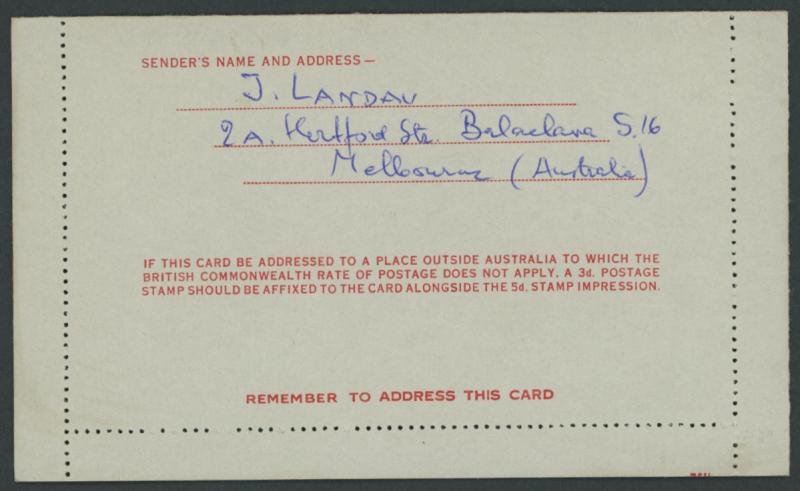 SENDER'S NAME AND ADDRESS —
J. LANDAU
2A. Hertford Str. Balaclava S.16
Melbourne (Australia)
IF THIS CARD BE ADDRESSED TO A PLACE OUTSIDE AUSTRALIA TO WHICH THE
BRITISH COMMONWEALTH RATE OF POSTAGE DOES NOT APPLY, A 3d. POSTAGE
STAMP SHOULD BE AFFIXED TO THE CARD ALONGSIDE THE 5d. STAMP IMPRESSION.
REMEMBER TO ADDRESS THIS CARD